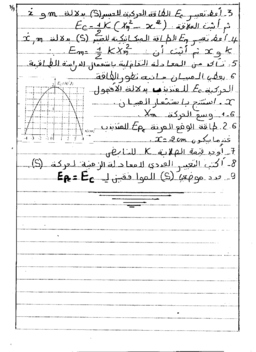 3. أعط تعبير Ec الطاقة الحركية للجسم (S) بدلالة m و ẋ
ثم أثبت العلاقة Ec = 1/2 K (Xm² - x²)
4. أعط تعبير Em الطاقة الميكانيكية للجسم (S) بدلالة m, ẋ
K و x ثم أثبت أن Em = 1/2 K Xm²
5. تأكد من المعادلة التفاضلية باستعمال الدراسة الطاقية
6. يعطي المبيان جانبه تطور الطاقة
الحركية Ec للمتذبذب بدلالة الأفصول
x. استنتج باستعمال المبيان
6.1. وسع الحركة Xm
6.2. طاقة الوضع المرنة Epe للمتذبذب
عندما يكون x = 2cm
7. أوجد قيمة الصلابة K للنابض
8. أكتب التعبير العددي للمعادلة الزمنية لحركة (S)
9. حدد موضعي (S) الموافقين ل Epe = Ec